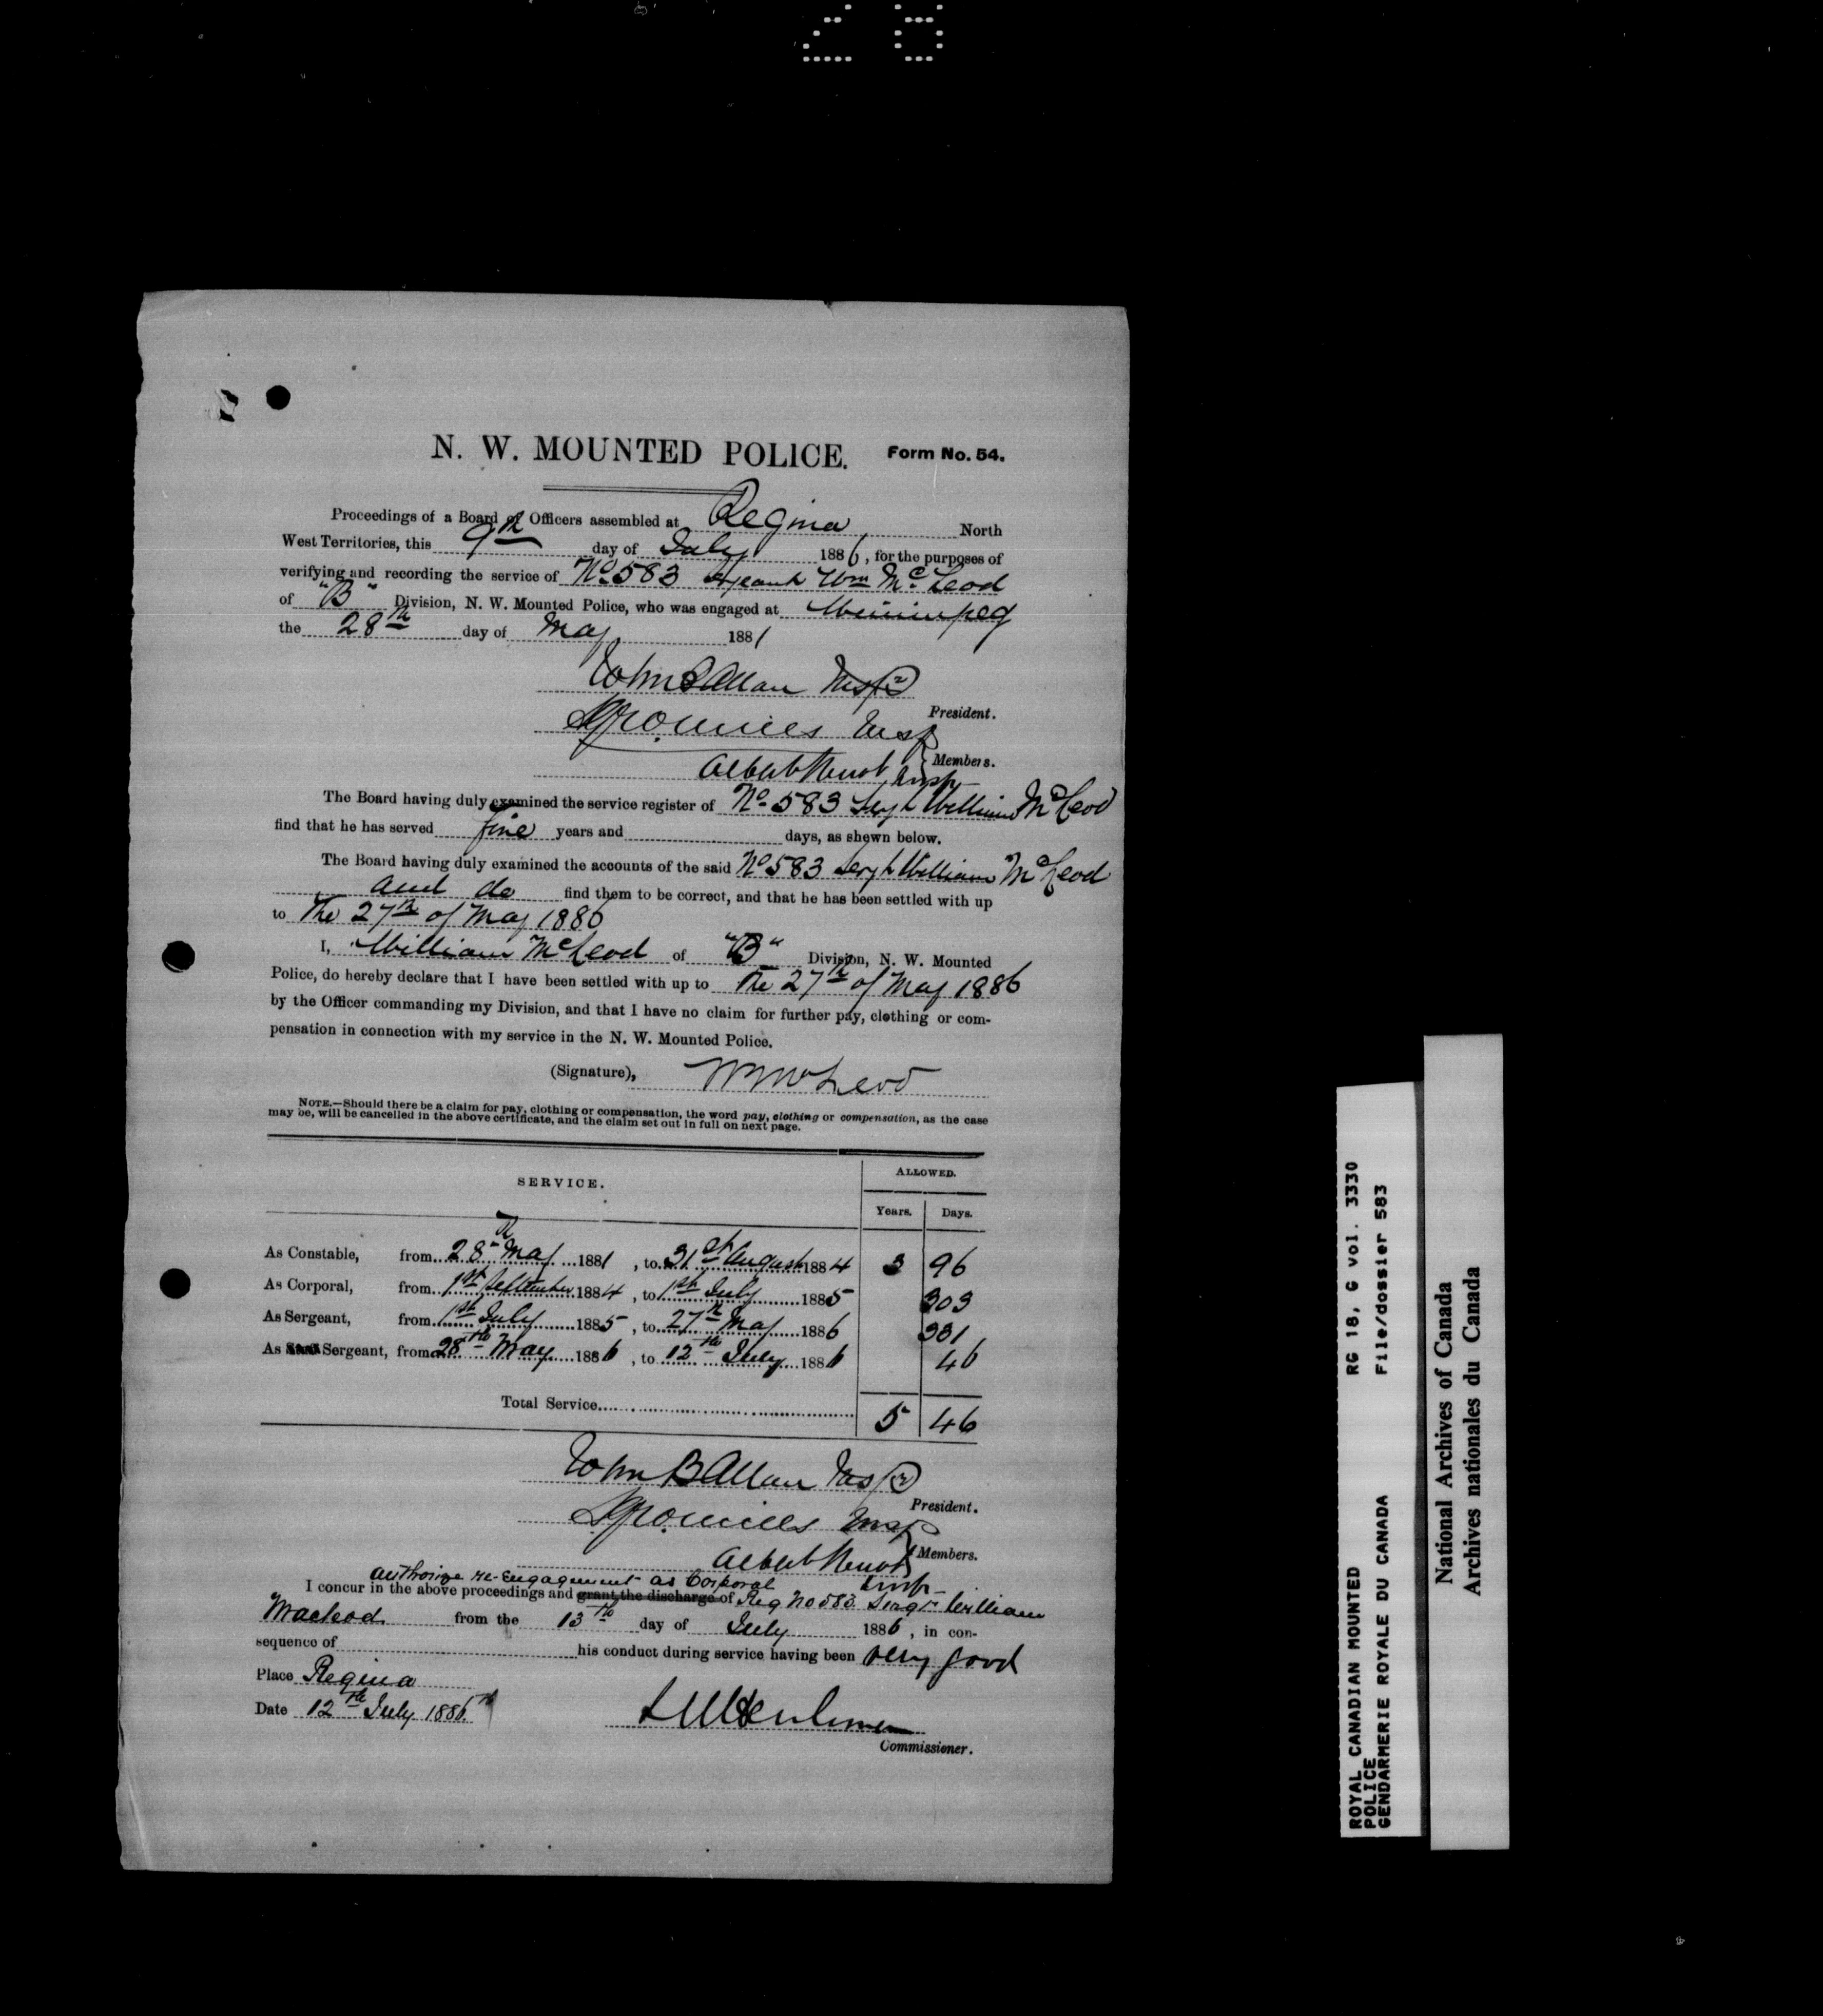 N. W. MOUNTED POLICE. Form No. 54.
Proceedings of a Board of Officers assembled at Regina North
West Territories, this 9th day of July 1886, for the purposes of
verifying and recording the service of No 583 Serjeant Wm McLeod
of "B" Division, N. W. Mounted Police, who was engaged at Winnipeg
the 28th day of May 1881
John B Allan Inspr
President.
Insp
Albert Insp
Members.
The Board having duly examined the service register of No 583 Sergt William McLeod
find that he has served five years and days, as shewn below.
The Board having duly examined the accounts of the said No 583 Sergt William McLeod
and do find them to be correct, and that he has been settled with up
to the 27th of May 1886
I, William McLeod of "B" Division, N. W. Mounted
Police, do hereby declare that I have been settled with up to the 27th of May 1886
by the Officer commanding my Division, and that I have no claim for further pay, clothing or com-
pensation in connection with my service in the N. W. Mounted Police.
(Signature), Wm McLeod
NOTE.—Should there be a claim for pay, clothing or compensation, the word pay, clothing or compensation, as the case
may be, will be cancelled in the above certificate, and the claim set out in full on next page.
SERVICE. ALLOWED.
Years. Days.
As Constable, from 28th May 1881, to 31st August 1884 3 96
As Corporal, from 1st September 1884, to 1st July 1885 303
As Sergeant, from 1st July 1885, to 27th May 1886 331
As Sergeant, from 28th May 1886, to 12th July 1886 46
Total Service 5 46
John B Allan Inspr
President.
Insp
Albert Insp
Members.
authorize re-engagement as Corporal
I concur in the above proceedings and grant the discharge of Reg No 583 Sergt William
Macleod from the 13th day of July 1886, in con-
sequence of his conduct during service having been very good
Place Regina
Date 12th July 1886
Commissioner.
ROYAL CANADIAN MOUNTED RG 18, G vol. 3330
POLICE
GENDARMERIE ROYALE DU CANADA File/dossier 583
National Archives of Canada
Archives nationales du Canada